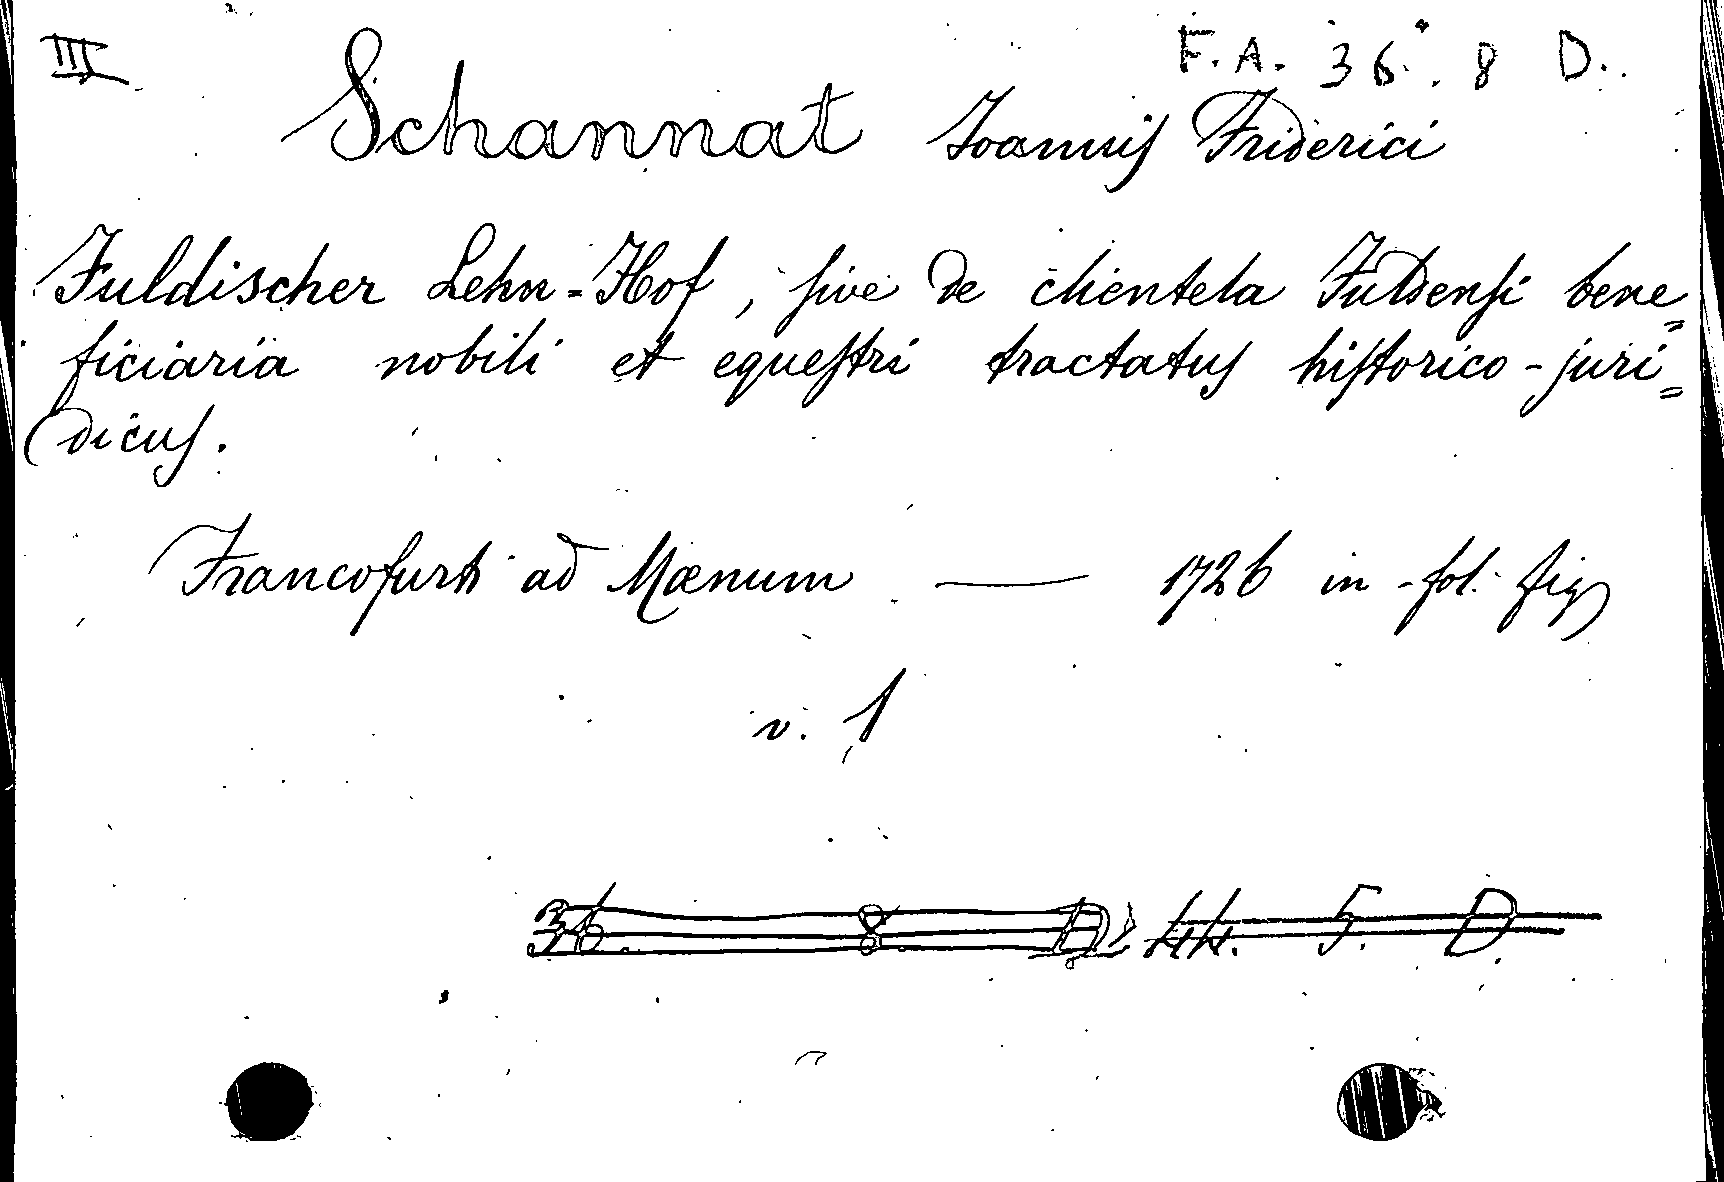 III
F. A. 36. 8 D.
Schannat Joannis Friderici
Fuldischer Lehn-Hof, sive de clientela Fuldensi bene=
ficiaria nobili et equestri tractatus historico-juri=
dicus.
Francofurti ad Mœnum — 1726 in-fol. fig
v. 1
36. 8 D. 44. 5. D.